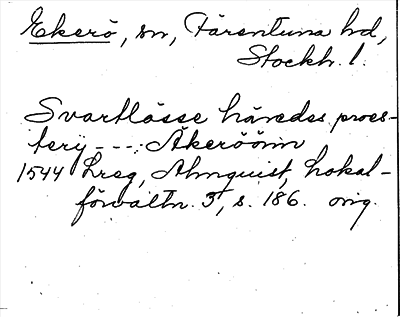 Ekerö, sn, Färentuna hd,
Stockh. l.
Svartlösse häredes proes-
terij ---: Åkeröönn
1544 Lreg, Almquist, Lokal-
förvaltn. 3, s. 186. orig.